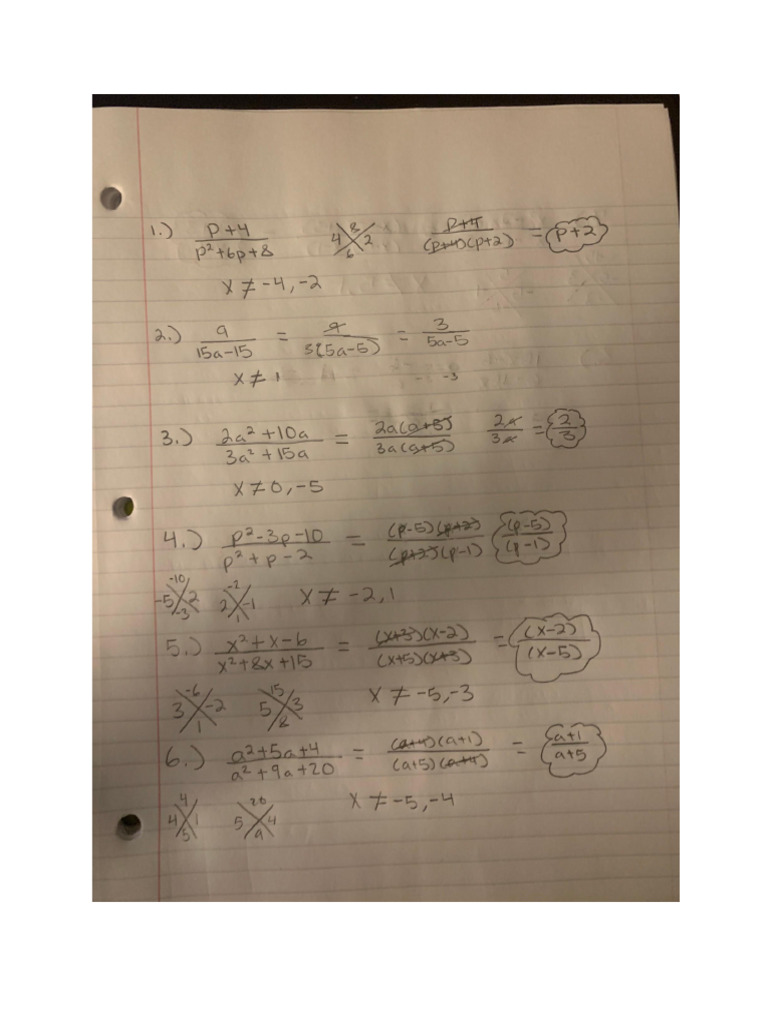 1.) p+4/(p²+6p+8) 8 4 2 6 p+4/((p+4)(p+2)) = p+2
x ≠ -4, -2
2.) 9/(15a-15) = 9/(3(5a-5)) = 3/(5a-5)
x ≠ 1 -3
3.) (2a²+10a)/(3a²+15a) = 2a(a+5)/3a(a+5) 2a/3a = 2/3
x ≠ 0, -5
4.) (p²-3p-10)/(p²+p-2) = (p-5)(p+2)/(p+2)(p-1) (p-5)/(p-1)
-10 -5 2 -3 -2 2 -1 1 x ≠ -2, 1
5.) (x²+x-6)/(x²+8x+15) = (x+3)(x-2)/(x+5)(x+3) = (x-2)/(x-5)
-6 3 -2 1 15 5 3 8 x ≠ -5, -3
6.) (a²+5a+4)/(a²+9a+20) = (a+4)(a+1)/(a+5)(a+4) = a+1/a+5
4 4 1 5 20 5 4 9 x ≠ -5, -4